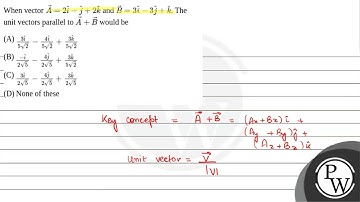 When vector $\vec{A} = 2\hat{i} - \hat{j} + 2\hat{k}$ and $\vec{B} = 3\hat{i} - 3\hat{j} + \hat{k}$. The
unit vectors parallel to $\vec{A} + \vec{B}$ would be
(A) $\frac{5\hat{i}}{5\sqrt{2}} - \frac{4\hat{j}}{5\sqrt{2}} + \frac{3\hat{k}}{5\sqrt{2}}$
(B) $\frac{-\hat{i}}{2\sqrt{5}} - \frac{4\hat{j}}{2\sqrt{5}} + \frac{3\hat{k}}{5\sqrt{2}}$
(C) $\frac{3\hat{i}}{2\sqrt{5}} - \frac{4\hat{j}}{2\sqrt{5}} + \frac{3\hat{k}}{2\sqrt{5}}$
(D) None of these
Key concept = $\vec{A} + \vec{B}$ = (Ax+Bx)î +
(Ay + By)ĵ +
(Az + Bz)k̂
Unit vector = $\frac{\vec{V}}{|V|}$
PW